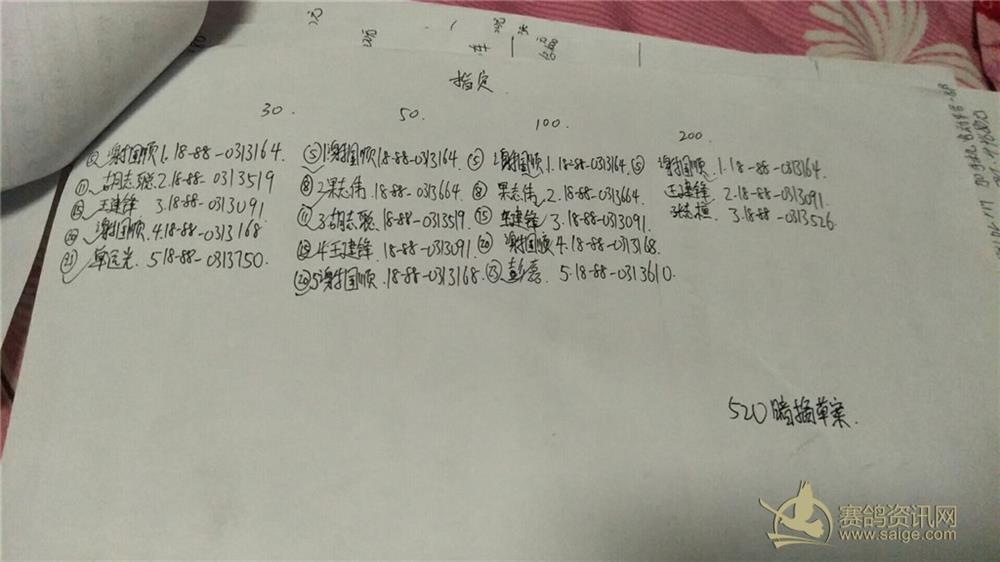 指定
30. 50. 100. 200
谢国顺 1.18-88-0313164
⑪ 胡志聪 2.18-88-0313519
⑮ 王建锋 3.18-88-0313091
⑳ 谢国顺 4.18-88-0313168
㉑ 单远光 5.18-88-0313750
⑤ 1谢国顺 18-88-0313164
⑧ 2果志伟 18-88-0313664
⑪ 3胡志聪 18-88-0313519
⑮ 4王建锋 18-88-0313091
⑳ 5谢国顺 18-88-0313168
⑤ 谢国顺 1.18-88-0313164
⑧ 果志伟 2.18-88-0313664
⑮ 王建锋 3.18-88-0313091
⑳ 谢国顺 4.18-88-0313168
㉓ 5.18-88-0313610
谢国顺 1.18-88-0313164
王建锋 2.18-88-0313091
3.18-88-0313526
520暗插草案.
赛鸽资讯网
www.saige.com